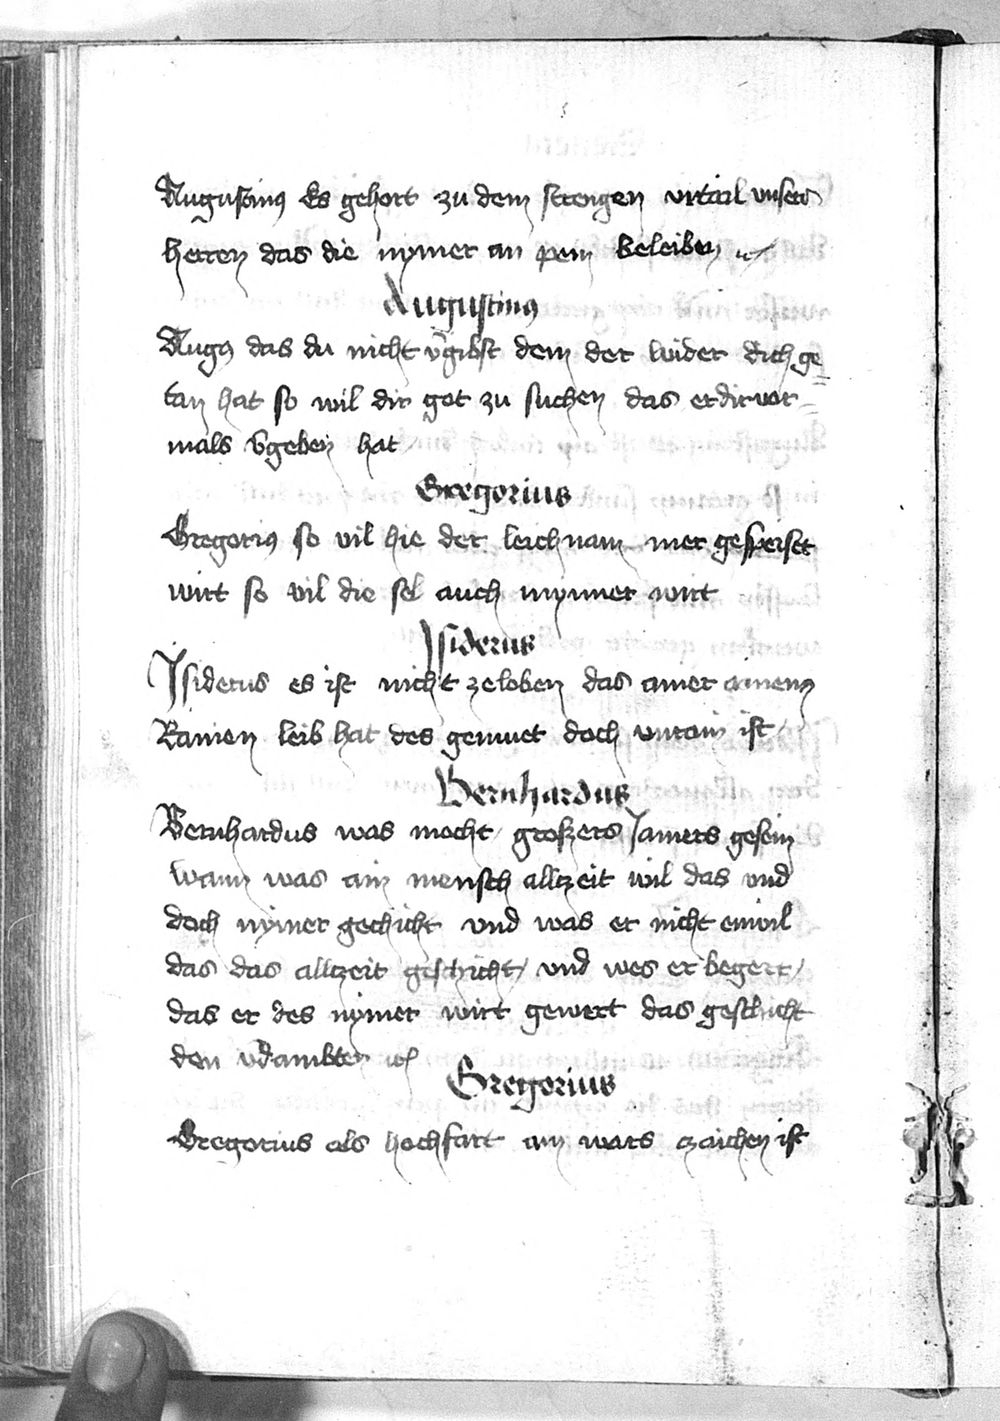 Augustinus Es gehort zu dem strengen vrtail vnsers
herren das die nymer an pein beleiben
Augustinus
Augus das du nicht vgibst dem der wider dich ge
tan hat so wil dir got zu suchen das er dir vor
mals vgeben hat
Gregorius
Gregorius so vil hie der leichnam mer gespeiset
wirt so vil die sel auch mynner wirt
Isiderus
Isiderus es ist nicht zeloben das ainer ainenn
Rainen leib hat des gemuet doch vnrain ist
Bernhardus
Bernhardus was mocht groszers Jamers gesein
wann was ain mensch alltzeit wil das vnd
doch nymer gechicht vnd was er nicht enwil
das das alltzeit geschicht / vnd wes er begert /
das er des nymer wirt gewert das geschicht
den vdambten
Gregorius
Gregorius als hochfart ain wars zaichen ist